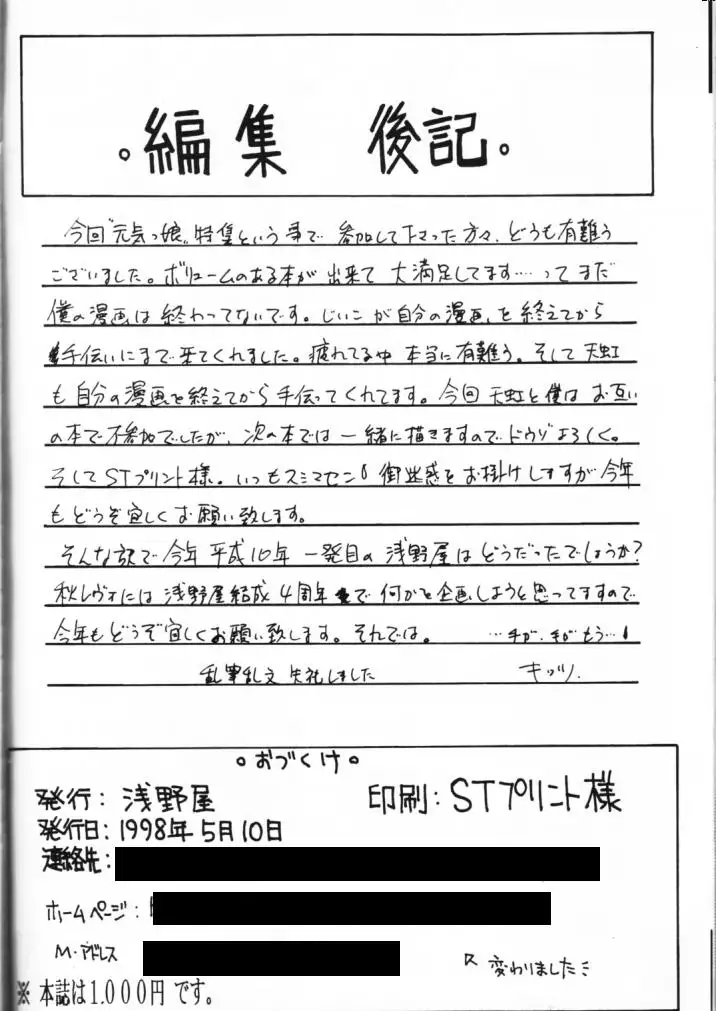 。編集 後記。
今回"元気っ娘"特集という事で 参加して下さった方々、どうも有難う
ございました。ボリュームのある本が出来て 大満足してます……ってまだ
僕の漫画は 終わってないです。じいこが自分の漫画を終えてから
手伝いにまで来てくれました。疲れてる中 本当に有難う。そして天虹
も自分の漫画を終えてから手伝ってくれてます。今回 天虹と僕は お互い
の本で不参加でしたが、次の本では 一緒に描きますのでドウゾよろしく。
そしてSTプリント様。いつもスミマセン! 御迷惑をお掛けしますが今年
もどうぞ宜しくお願い致します。
そんな訳で今年 平成10年 一発目の 浅野屋はどうだったでしょうか?
秋レヴォには 浅野屋結成4周年で 何かと企画しようと思ってますので
今年もどうぞ宜しくお願い致します。それでは。 …手が、手がもう…!
乱筆乱文 失礼しました キッツ.
。おづくけ。
発行: 浅野屋 印刷: STプリント様
発行日: 1998年5月10日
連絡先:
ホームページ:
M・アドレス 変わりました
※本誌は1.000円です。